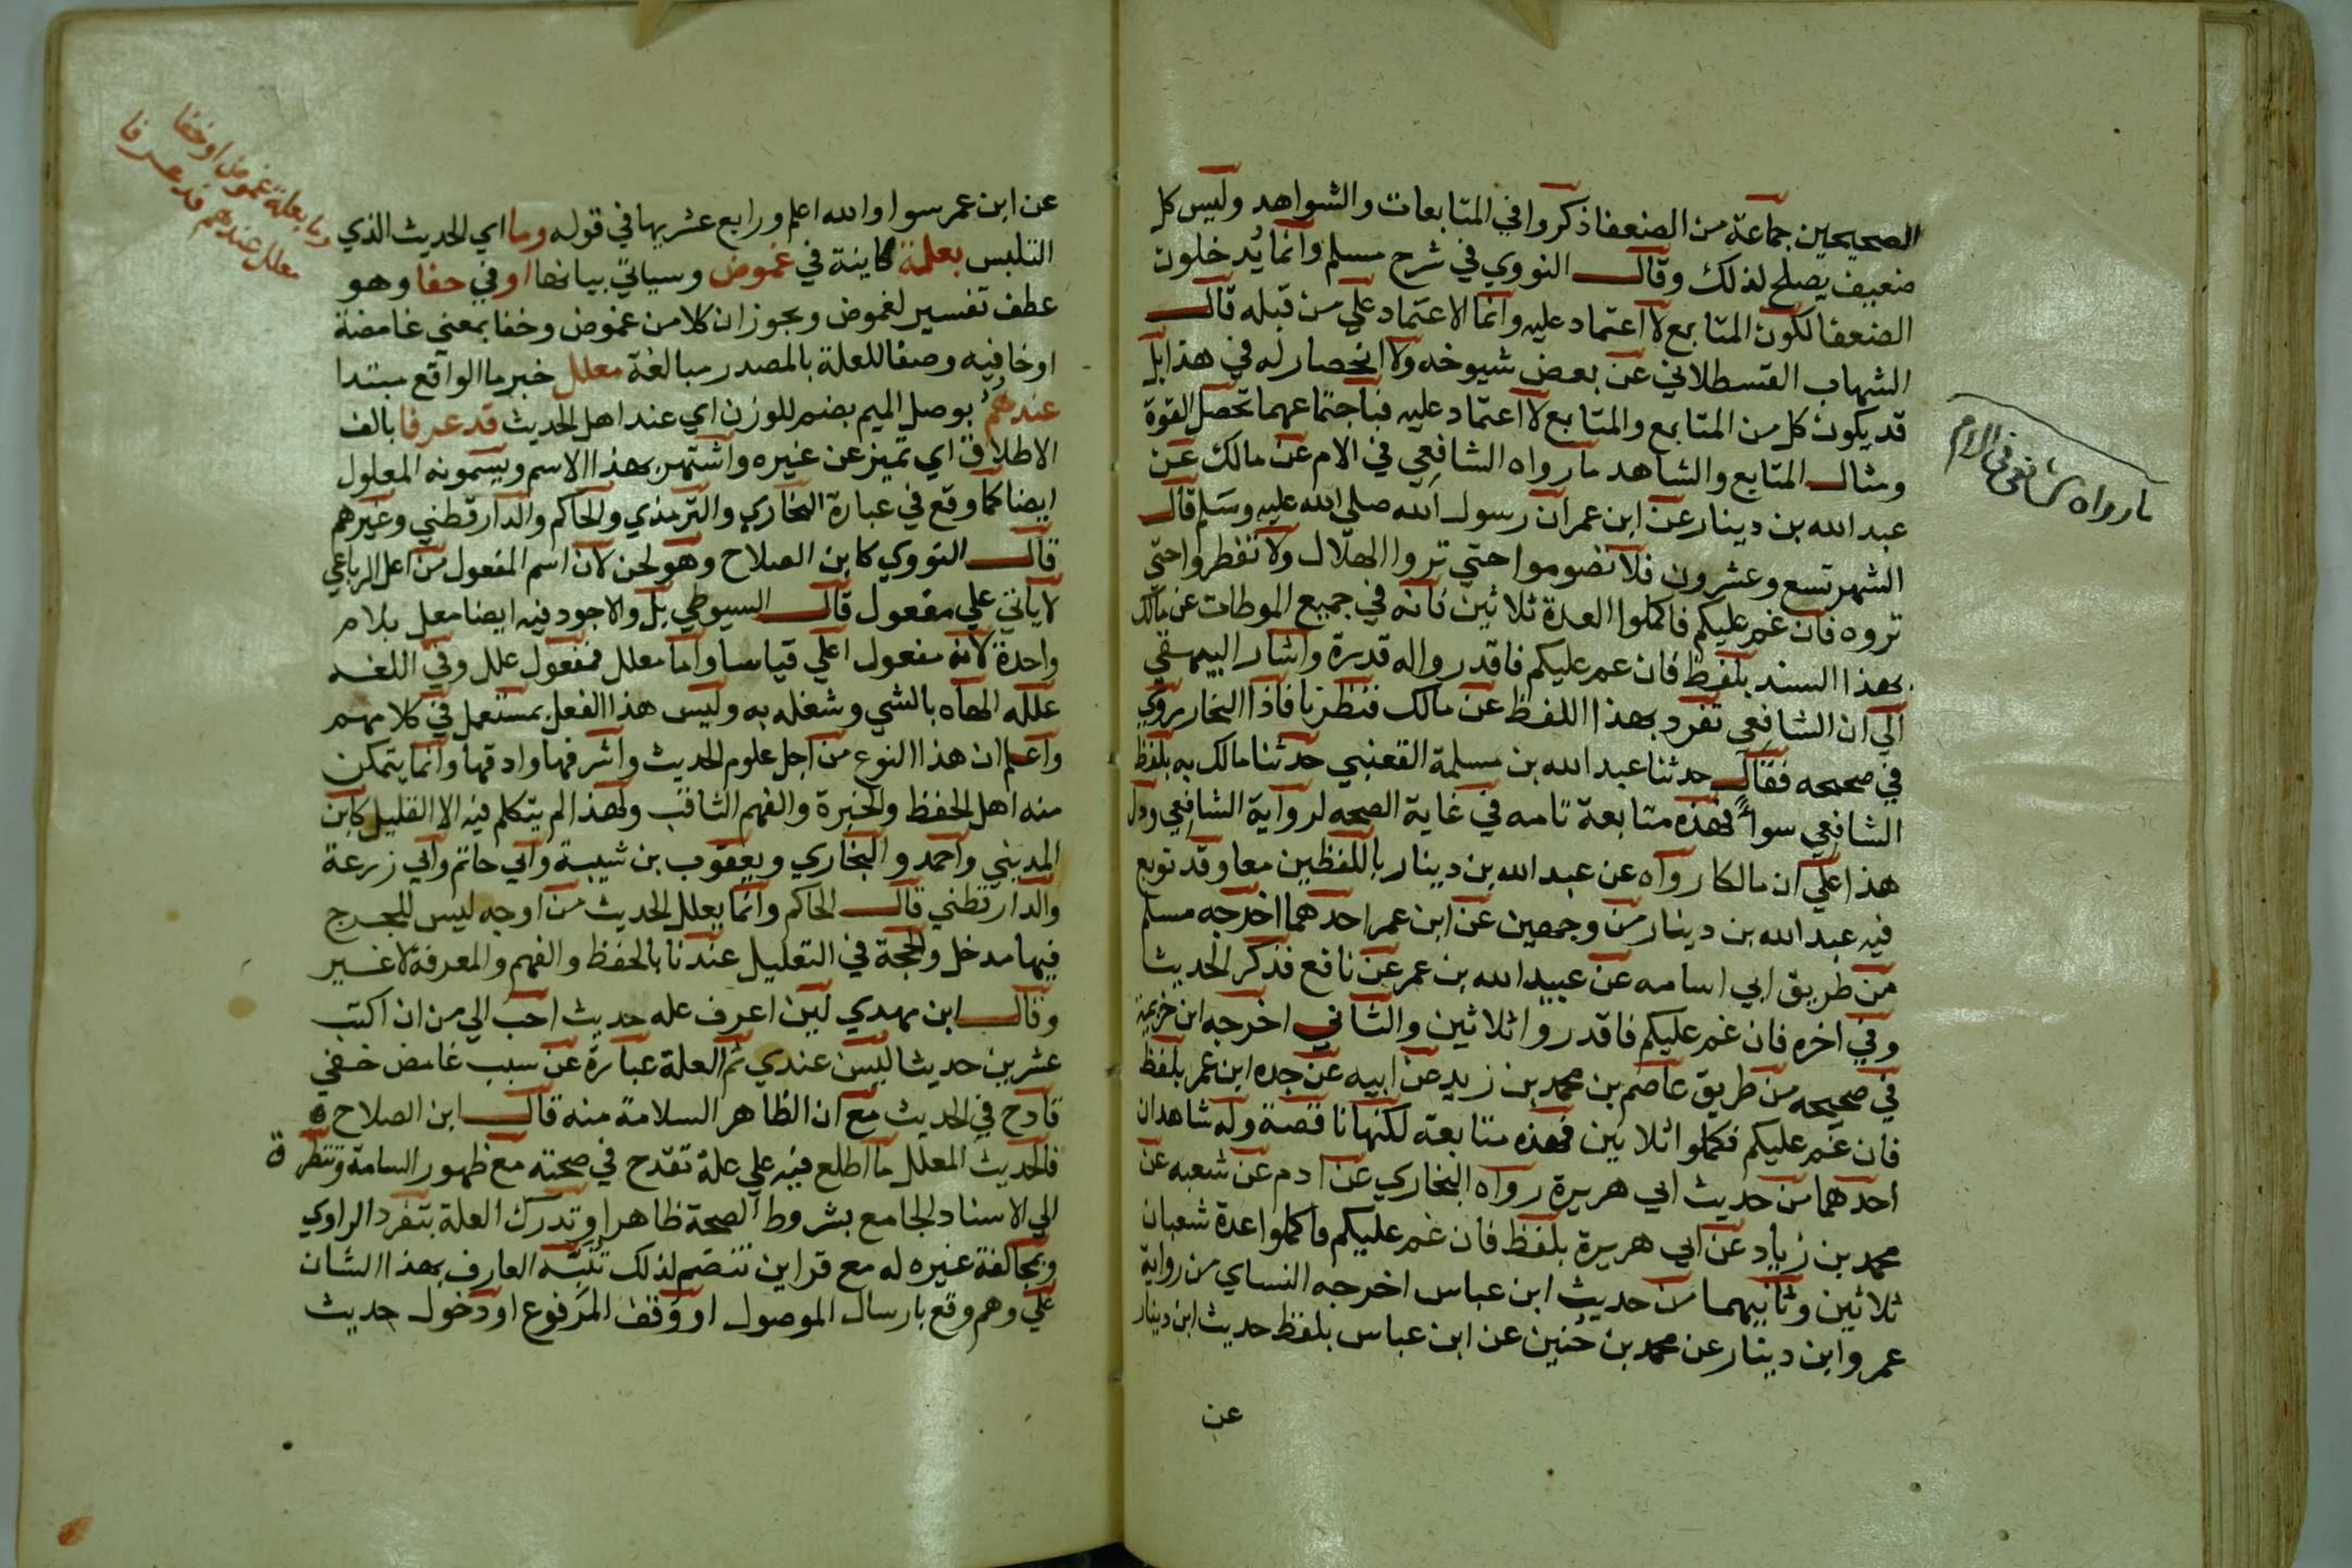 الصحيحين جماعة من الضعفا ذكروا في المتابعات والشواهد وليس كل
ضعيف يصلح لذلك وقال النووي في شرح مسلم وانما يدخلون
الضعفا لكون المتابع لا اعتماد عليه وانما الاعتماد علي من قبله قال
الشهاب القسطلاني عن بعض شيوخه ولا انحصار له في هذا بل
قد يكون كل من المتابع والمتابع لا اعتماد عليه فباجتماعهما تحصل القوة
ومثال المتابع والشاهد ما رواه الشافعي في الام عن مالك عن
عبد الله بن دينار عن ابن عمر ان رسول الله صلي الله عليه وسلم قال
الشهر تسع وعشرون فلا تصوموا حتي تروا الهلال ولا تفطروا حتي
تروه فان غم عليكم فاكملوا العدة ثلاثين فانه في جميع الموطات عن مالك
بهذا السند بلفظ فان غم عليكم فاقدروا له قدرة واشار البيهقي
الي ان الشافعي تفرد بهذا اللفظ عن مالك فنظرنا فاذا البخار يروي
في صحيحه فقال حدثنا عبد الله بن مسلمة القعنبي حدثنا مالك به بلفظ
الشافعي سواء فهذه متابعة تامه في غاية الصحه لرواية الشافعي ودل
هذا علي ان مالكا رواه عن عبد الله بن دينار باللفظين معا وقد توبع
فيه عبد الله بن دينار من وجهين عن ابن عمر احدهما اخرجه مسلم
من طريق ابي اسامه عن عبيد الله بن عمر عن نافع فذكر الحديث
وفي اخره فان غم عليكم فاقدروا ثلاثين والثاني اخرجه ابن خزيمة
في صحيحه من طريق عاصم بن محمد بن زيد عن ابيه عن جده ابن عمر بلفظ
فان غم عليكم فكملوا ثلاثين فهذه متابعة لكنها ناقصة وله شاهدان
احدهما من حديث ابي هريرة رواه البخاري عن ادم عن شعبه عن
محمد بن زياد عن ابي هريرة بلفظ فان غم عليكم فاكملوا عدة شعبان
ثلاثين وثانيهما من حديث ابن عباس اخرجه النساي من رواية
عمرو ابن دينار عن محمد بن حنين عن ابن عباس بلفظ حديث ابن دينار
عن
ما رواه شافعي في الام
عن ابن عمر سوا والله اعلم ورابع عشريها في قوله وما اي الحديث الذي
التلبس بعلة كاينة في غموض وسياتي بيانها او في خفا وهو
عطف تفسير لغموض ويجوز ان كلا من غموض وخفا بمعني غامضة
او خافيه وصفا للعلة بالمصدر مبالغة معلل خبر ما الواقع مبتدا
عندهم بوصل الميم بضم للوزن اي عند اهل الحديث قد عرفا بالف
الاطلاق اي تميز عن غيره واشتهر بهذا الاسم ويسمونه المعلول
ايضا كما وقع في عبارة البخاري والترمذي والحاكم والدارقطني وغيرهم
قال النووي كابن الصلاح وهو لحن لان اسم المفعول من اعل الرباعي
لا ياتي علي مفعول قال السيوطي بل والاجود فيه ايضا معل بلام
واحدة لانه مفعول اعلي قياسا واما معلل فمفعول علل وفي اللغه
علله الهاه بالشي وشغله به وليس هذا الفعل بمستعمل في كلامهم
واعلم ان هذا النوع من اجل علوم الحديث واشرفها وادقها وانما يتمكن
منه اهل الحفظ والخبرة والفهم الثاقب ولهذا لم يتكلم فيه الا القليل كابن
المديني واحمد والبخاري ويعقوب بن شيبة وابي حاتم وابي زرعة
والدارقطني قال الحاكم وانما يعلل الحديث من اوجه ليس للجرح
فيها مدخل والحجة في التعليل عندنا بالحفظ والفهم والمعرفة لا غير
وقال ابن مهدي لين اعرف عله حديث احب الي من ان اكتب
عشرين حديثا ليس عندي ثم العلة عبارة عن سبب غامض خفي
قادح في الحديث مع ان الظاهر السلامة منه قال ابن الصلاح ه
فالحديث المعلل ما اطلع فيه علي علة تقدح في صحته مع ظهور السامة وتنطرق
الي الاسناد الجامع بشروط الصحة ظاهرا وتدرك العلة بتفرد الراوي
وبمخالفة غيره له مع قراين تنضم لذلك تنبه العارف بهذا الشان
علي وهم وقع بارسال الموصول او وقف المرفوع او دخول حديث
وما بعلة غموض او خفا
معلل عندهم قد عرفا